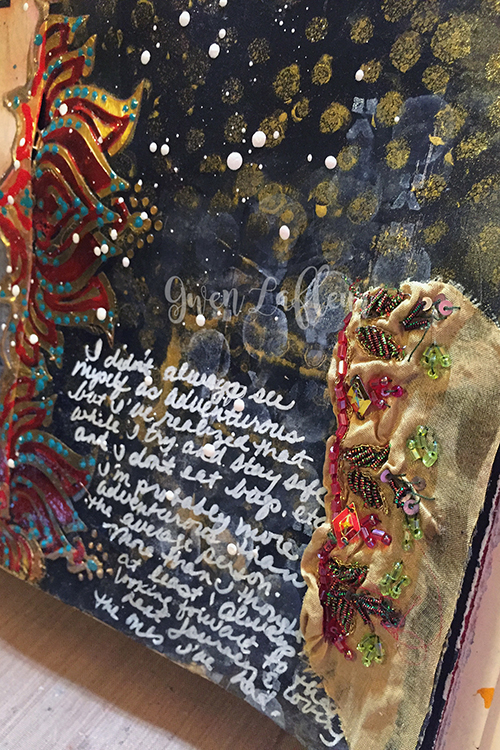 Gwen Lafleur
I didn't always see
myself as adventurous
but I've realized that
while I try and stay safe
and I don't eat bugs, etc
I'm probably more
adventurous than
the average person.
More than, though,
at least I always
look forward to
next journey
the ones I've had.